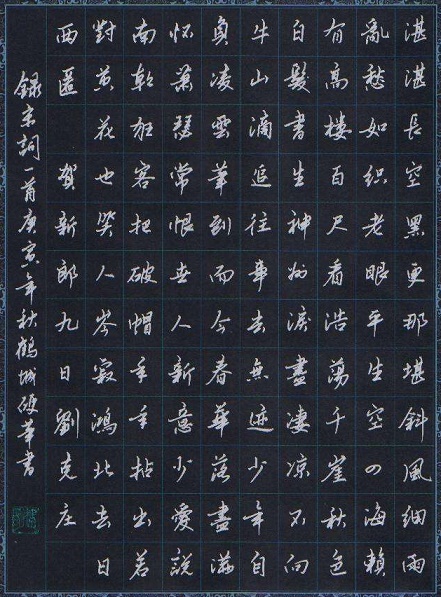 湛湛長空黑更那堪斜風細雨
亂愁如織老眼平生空四海賴
有高樓百尺看浩蕩千崖秋色
白髮書生神州淚盡凄凉不向
牛山滴追往事去無迹少年自
負凌雲筆到而今春華落盡滿
怀蕭瑟常恨世人新意少愛說
南朝狂客把破帽年年拈出若
對黄花也笑人岑寂鴻北去日
西匿 賀新郎九日劉克庄
録宋詞一首庚寅年秋鶴城硬筆書